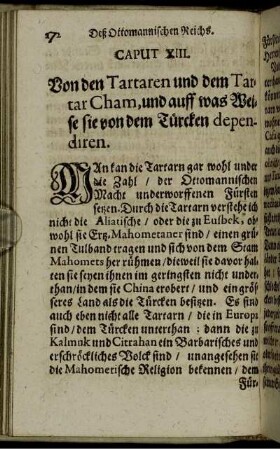 172 Deß Ottomannischen Reichs.
CAPUT XIII.
Von den Tartaren und dem Tar-
tar Cham, und auff was Wei-
se sie von dem Türcken depen-
diren.
MAn kan die Tartarn gar wohl under
die Zahl / der Ottomannischen
Macht underworffenen Fürsten
setzen. Durch die Tartarn verstehe ich
nicht die Asiatische / oder die zu Eusbek, ob-
wohl sie Ertz-Mahometaner sind / einen grü-
nen Tulband tragen und sich von dem Stam
Mahomets her rühmen / dieweil sie davor hal-
ten sie seyen ihnen im geringsten nicht under-
than / in dem sie China erobert / und ein grös-
seres Land als die Türcken besitzen. Es sind
auch eben nicht alle Tartarn / die in Europa
sind / dem Türcken underthan: dann die zu
Kalmuk und Citrahan ein Barbarisches und
erschröckliches Volck sind / unangesehen sie
die Mahomerische Religion bekennen / dem
Für-